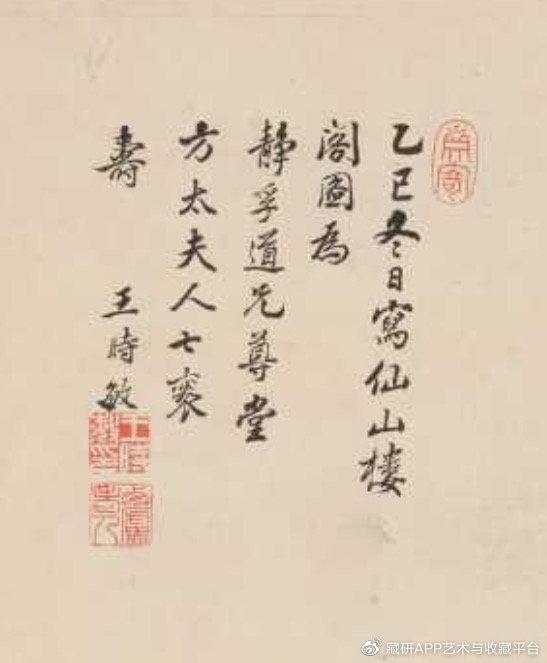 乙巳冬日寫仙山樓
閣圖爲
靜孚道兄尊堂
方太夫人七袠
壽
王時敏
藏研APP艺术与收藏平台